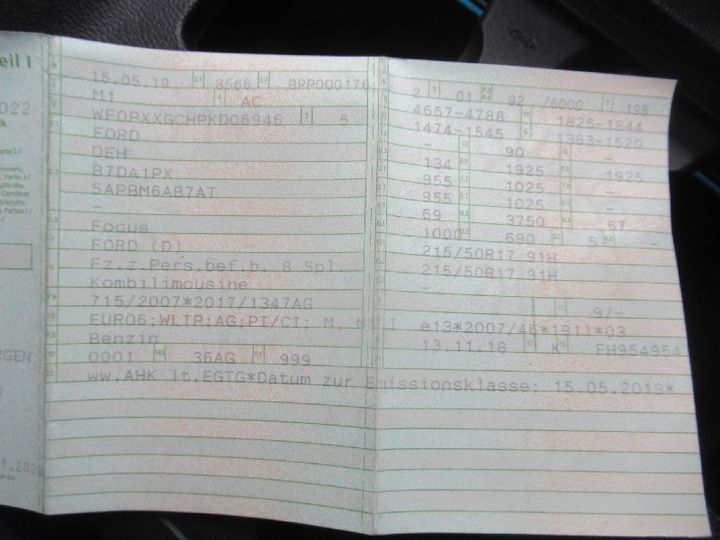 eil I
15.05.19 8566 BPP000176
M1 AC
WF0PXXGCHPKD06946 5
FORD
DEH
B7DA1PX
5APBM6AB7AT
–
Focus
FORD (D)
Fz.z.Pers.bef.b. 8 Spl.
Kombilimousine
715/2007*2017/1347AG
EURO6;WLTP;AG;PI/CI; M, N1 I
Benzin
0001 36AG 999
ww.AHK lt.EGTG*Datum zur Emissionsklasse: 15.05.2019*
2 01 92 /6000 198
4667-4788 1825-1844
1474-1545 1383-1520
– 90 –
134 1925 1925
955 1025 –
955 1025 –
69 3750 67
1000 690 5 –
215/50R17 91H
215/50R17 91H
–
9/–
e13*2007/46*1911*03
13.11.18 K FH954954
022
RGEN